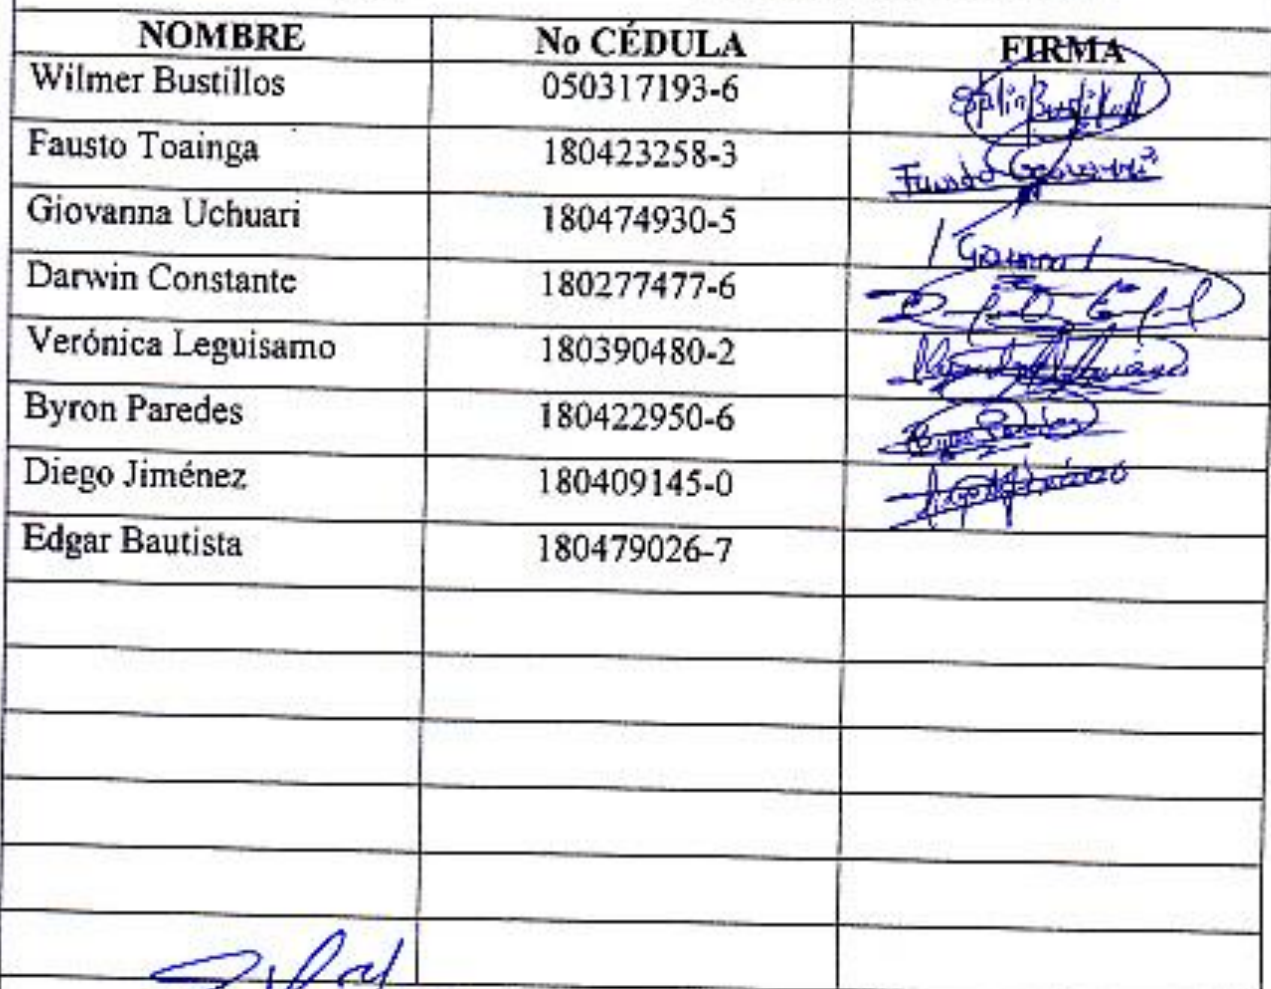 NOMBRE No CÉDULA FIRMA
Wilmer Bustillos 050317193-6
Fausto Toainga 180423258-3 Fausto
Giovanna Uchuari 180474930-5
Darwin Constante 180277477-6
Verónica Leguisamo 180390480-2
Byron Paredes 180422950-6 Byron Paredes
Diego Jiménez 180409145-0
Edgar Bautista 180479026-7